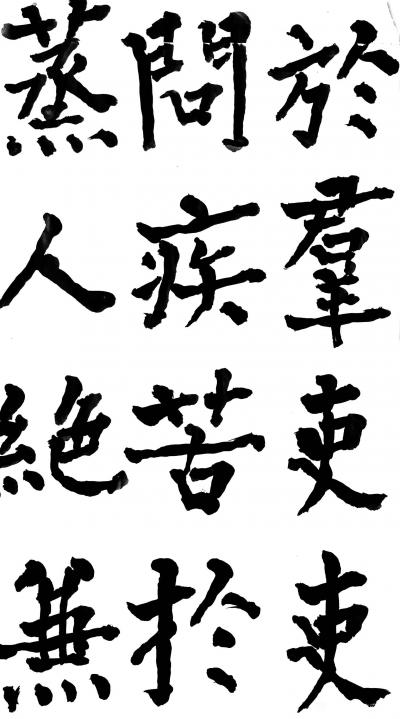 於羣吏吏
問疾苦於
蒸人絕兼